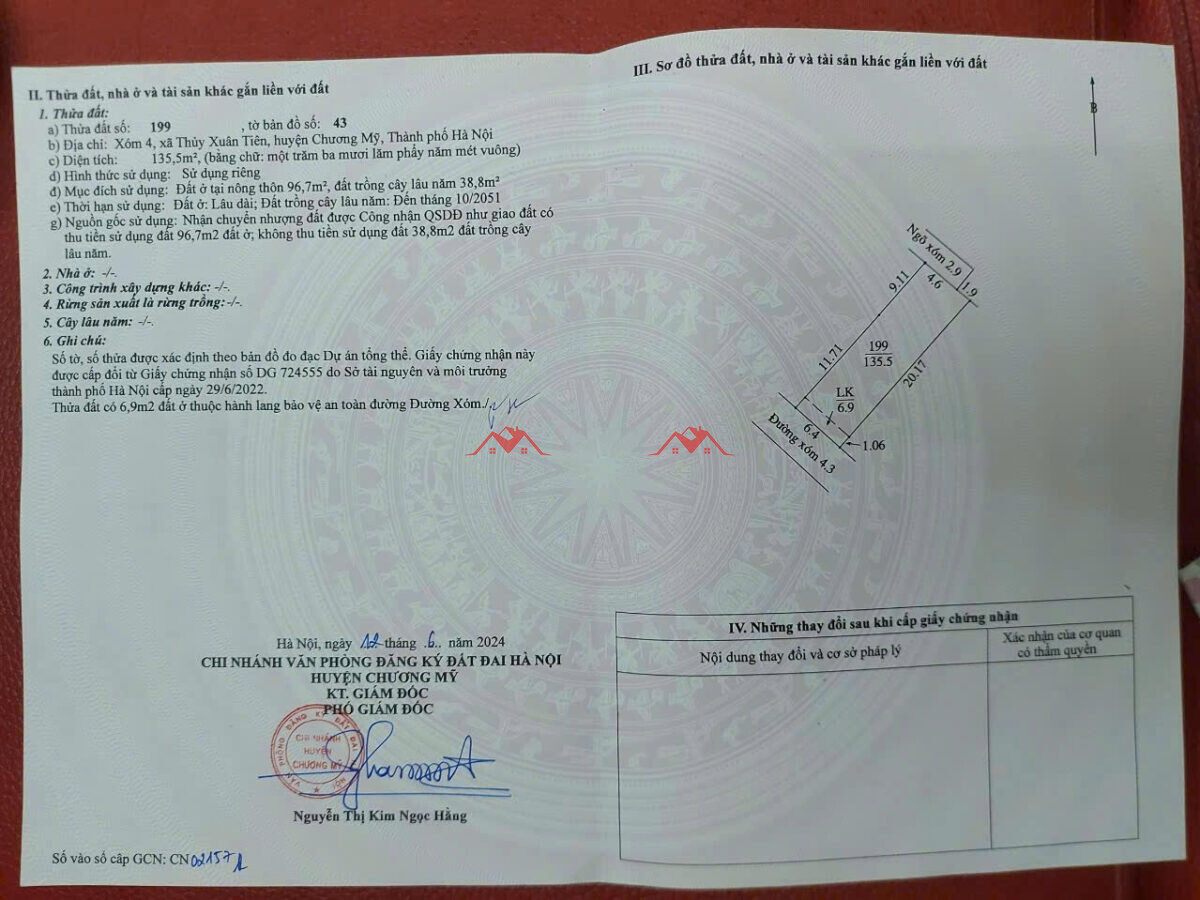 II. Thửa đất, nhà ở và tài sản khác gắn liền với đất
1. Thửa đất:
a) Thửa đất số: 199 , tờ bản đồ số: 43
b) Địa chỉ: Xóm 4, xã Thủy Xuân Tiên, huyện Chương Mỹ, Thành phố Hà Nội
c) Diện tích: 135,5m², (bằng chữ: một trăm ba mươi lăm phẩy năm mét vuông)
d) Hình thức sử dụng: Sử dụng riêng
đ) Mục đích sử dụng: Đất ở tại nông thôn 96,7m², đất trồng cây lâu năm 38,8m²
e) Thời hạn sử dụng: Đất ở: Lâu dài; Đất trồng cây lâu năm: Đến tháng 10/2051
g) Nguồn gốc sử dụng: Nhận chuyển nhượng đất được Công nhận QSDĐ như giao đất có
thu tiền sử dụng đất 96,7m2 đất ở; không thu tiền sử dụng đất 38,8m2 đất trồng cây
lâu năm.
2. Nhà ở: -/-.
3. Công trình xây dựng khác: -/-.
4. Rừng sản xuất là rừng trồng:-/-.
5. Cây lâu năm: -/-.
6. Ghi chú:
Số tờ, số thửa được xác định theo bản đồ đo đạc Dự án tổng thể. Giấy chứng nhận này
được cấp đổi từ Giấy chứng nhận số DG 724555 do Sở tài nguyên và môi trường
thành phố Hà Nội cấp ngày 29/6/2022.
Thửa đất có 6,9m2 đất ở thuộc hành lang bảo vệ an toàn đường Đường Xóm./
Hà Nội, ngày 12 tháng 6.. năm 2024
CHI NHÁNH VĂN PHÒNG ĐĂNG KÝ ĐẤT ĐAI HÀ NỘI
HUYỆN CHƯƠNG MỸ
KT. GIÁM ĐỐC
PHÓ GIÁM ĐỐC
VĂN PHÒNG ĐĂNG KÝ ĐẤT ĐAI HÀ NỘI
CHI NHÁNH
HUYỆN
CHƯƠNG MỸ
Nguyễn Thị Kim Ngọc Hằng
Số vào sổ cấp GCN: CN 02157
III. Sơ đồ thửa đất, nhà ở và tài sản khác gắn liền với đất
B
Ngõ xóm 2.9
4.6
1.9
9.11
11.71
199
135.5
20.17
LK
6.9
6.4
1.06
Đường xóm 4.3
IV. Những thay đổi sau khi cấp giấy chứng nhận
Nội dung thay đổi và cơ sở pháp lý
Xác nhận của cơ quan
có thẩm quyền